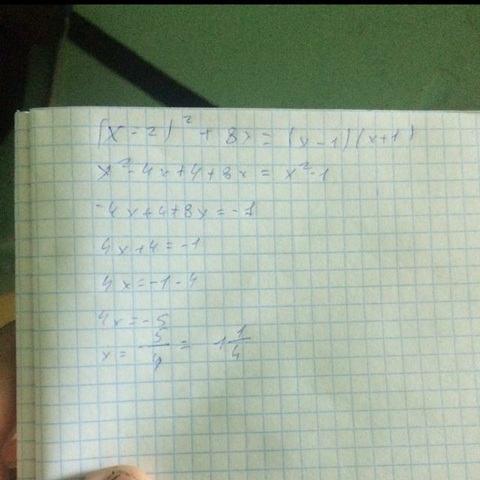 (x-2)² + 8x = (x-1)(x+1)
x²-4x+4+8x = x²-1
-4x+4+8x=-1
4x+4=-1
4x=-1-4
4x=-5
x= -5/4 = -1 1/4